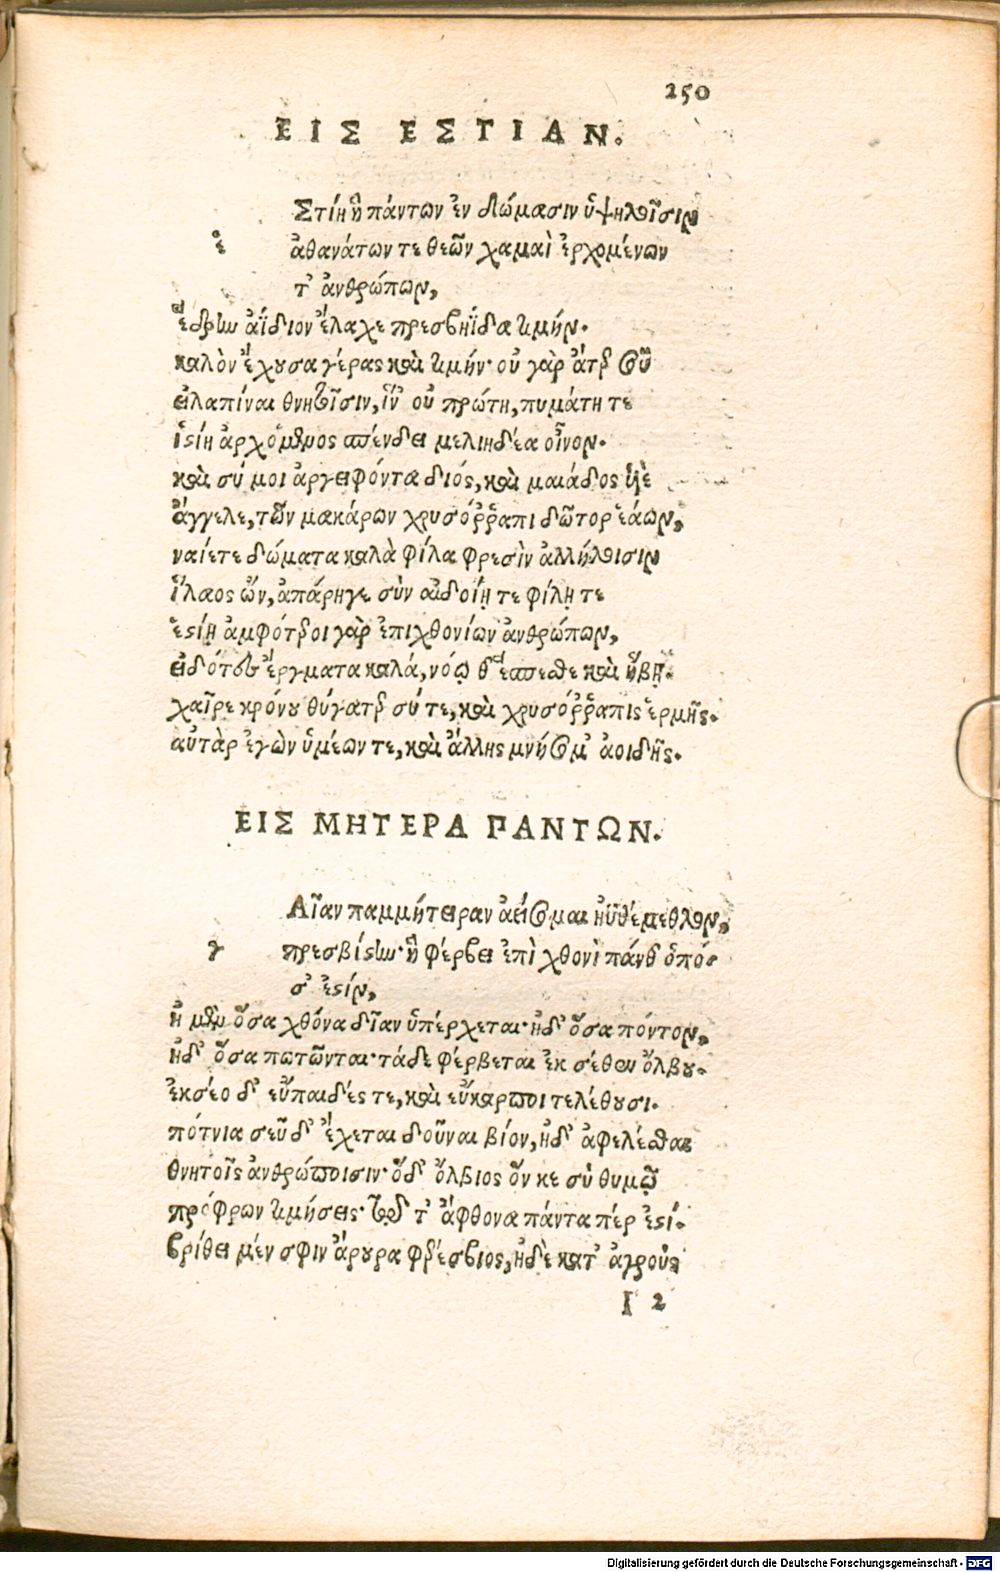 250
ΕΙΣ ΕΣΤΙΑΝ.
Στίη ἣ πάντων ἐν δώμασιν ὑψηλοῖσιν
ἑ ἀθανάτων τε θεῶν χαμαὶ ἐρχομένων
τ' ἀνθρώπων,
ἕδρην ἀΐδιον ἔλαχε πρεσβηΐδα τιμήν.
καλὸν ἔχουσα γέρας καὶ τιμήν· οὐ γὰρ ἄτερ σοῦ
εἰλαπίναι θνητοῖσιν, ἵν' οὐ πρώτη, πυμάτη τε
ἱστίη ἀρχόμενος σπένδει μελιηδέα οἶνον.
καὶ σύ μοι ἀργειφόντα διός, καὶ μαιάδος υἱὲ
ἄγγελε, τῶν μακάρων χρυσόῤῥαπι δῶτορ ἐάων,
ναίετε δώματα καλὰ φίλα φρεσὶν ἀλλήλοισιν
ἵλαος ὢν, ἐπάρηγε σὺν αἰδοίῃ τε φίλῃ τε
ἑστίῃ ἀμφότεροι γὰρ ἐπιχθονίων ἀνθρώπων,
εἰδότες ἔργματα καλά, νόῳ θ' ἕσπεσθε καὶ ἥβῃ.
χαῖρε κρόνου θύγατερ σύ τε, καὶ χρυσόῤῥαπις ἑρμῆς.
αὐτὰρ ἐγὼν ὑμέων τε, καὶ ἄλλης μνήσομ' ἀοιδῆς.
ΕΙΣ ΜΗΤΕΡΑ ΠΑΝΤΩΝ.
Αῖαν παμμήτειραν ἀείσομαι ἠϋθέμεθλον,
γ πρεσβίστην· ἣ φέρβει ἐπὶ χθονὶ πάνθ ὁπό-
σ' ἐστίν,
ἠ μὲν ὅσα χθόνα δῖαν ὑπέρχεται· ἠδ' ὅσα πόντον,
ἠδ' ὅσα πωτῶνται· τάδε φέρβεται ἐκ σέθεν ὄλβου.
ἐκσέο δ' εὔπαιδές τε, καὶ εὔκαρποι τελέθουσι.
πότνια σεῦ δ' ἔχεται δοῦναι βίον, ἠδ' ἀφελέσθαι
θνητοῖς ἀνθρώποισιν· ὅδ' ὄλβιος ὅν κε σὺ θυμῷ
πρόφρων τιμήσεις· τῷδ τ' ἄφθονα πάντα πέρ ἐστί.
βρίθει μέν σφιν ἄρουρα φερέσβιος, ἠδὲ κατ' ἀγροὺς
I 2
Digitalisierung gefördert durch die Deutsche Forschungsgemeinschaft - DFG